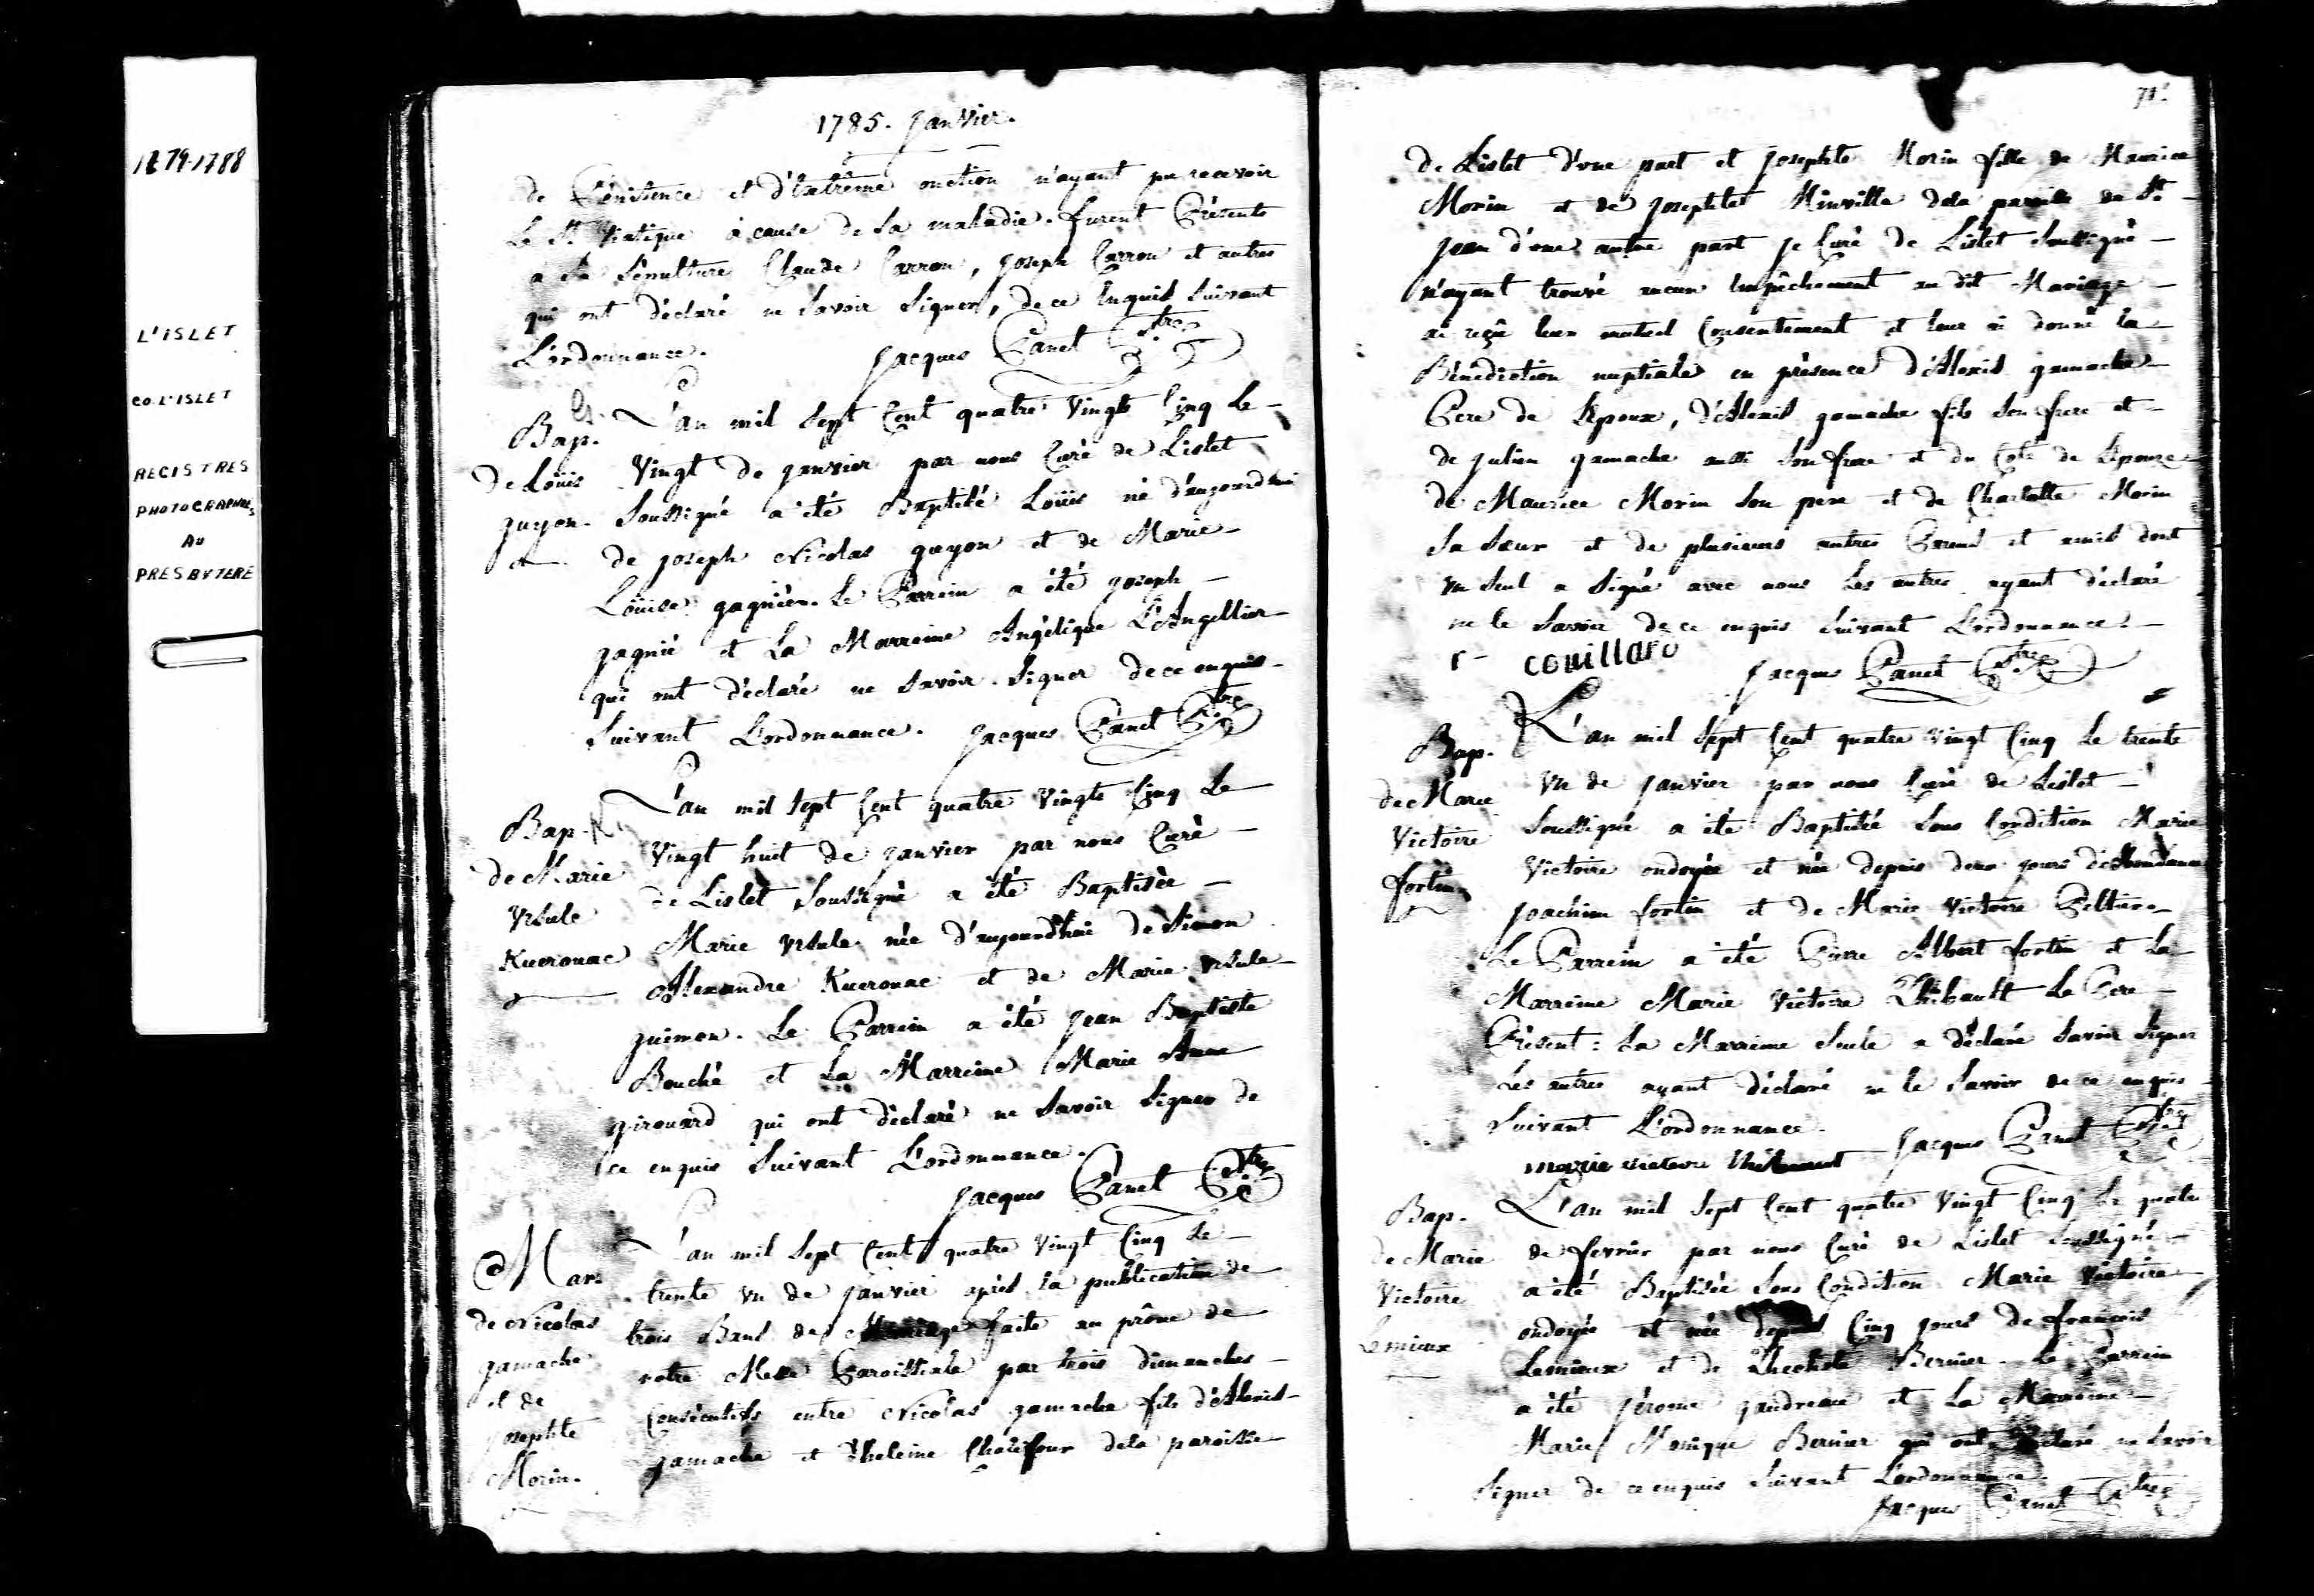 1779-1788
L'ISLET
CO. L'ISLET
REGISTRES
PHOTOGRAPHIÉS
AU
PRESBYTERE
1785. Janvier.
de Pénitence et d'Extrême onction n'ayant pu recevoir
Le St. Viatique à cause de sa maladie. furent Présents
a sa Sépulture Claude Carron, Joseph Carron et autres
qui ont déclaré ne savoir signer, de ce Enquis suivant
L'ordonnance. Jacques Panet Ptre
Bap.
de Loüis
guyon.
L'an mil sept Cent quatre vingts Cinq Le
Vingt de janvier par nous Curé de Lislet
Soussigné a été Baptisé Loüis né d'aujourdhui
de joseph Nicolas guyon et de Marie
Loüise gagnier. Le Parrein a été joseph
gagnié et La Marreine Angélique L'Angellier
qui ont déclaré ne savoir signer de ce enquis
suivant L'ordonnance. Jacques Panet Ptre
Bap.
de Marie
Ursule
Kuerouac
L'an mil sept Cent quatre vingts Cinq Le
Vingt huit de janvier par nous Curé
de Lislet Soussigné a été Baptisée
Marie Ursule née d'aujourdhui de Simon
Alexandre Kuerouac et de Marie Ursule
guimon. Le Parrein a été Jean Baptiste
Bouché et La Marreine Marie Anne
girouard qui ont déclaré ne savoir signer de
ce enquis suivant L'ordonnance.
Jacques Panet Ptre
Mar.
de Nicolas
gamache
et de
josephte
Morin.
L'an mil sept Cent quatre vingt Cinq Le
trente un de Janvier après la publication de
trois Bans de Mariage faite au prône de
notre Messe Paroissiale par trois dimanches
Consécutifs entre Nicolas gamache fils d'Alexis
gamache et d'heleine Choüifour dela paroisse
71.
de Lislet d'une part et josephte Morin fille de Maurice
Morin et de josephte Minville dela paroisse de St.
jean d'une autre part je Curé de Lislet Soussigné
n'ayant trouvé aucun Empêchement au dit Mariage
ai reçû leur mutuel Consentement et leur ai donné la
Bénédiction nuptiale en présence d'Alexis gamache
Pere de L'Epoux, d'Alexis gamache fils son frere et
de julien gamache aussi son frere et du Coté de L'Epouze
de Maurice Morin son pere et de Charlotte Morin
sa soeur et de plusieurs autres Parens et amis dont
un seul a signé avec nous Les autres ayant déclaré
ne le savoir de ce enquis suivant L'ordonnance.
couillard Jacques Panet Ptre
Bap.
de Marie
Victoire
fortin
L'an mil sept Cent quatre vingt Cinq Le trente
un de Janvier par nous Curé de Lislet
Soussigné a été Baptisée sous Condition Marie
Victoire ondoyée et née depuis deux jours
joachim fortin et de Marie Victoire Peltier.
Le Parrein a été Pierre Albert fortin et La
Marreine Marie Victoire Thibault Le Pere
Présent: La Marreine seule a déclaré savoir signer
Les autres ayant déclaré ne le savoir de ce enquis
suivant L'ordonnance.
marie victoire Jacques Panet Ptre
Bap.
de Marie
Victoire
Lemieux
L'an mil sept Cent quatre vingt Cinq Le quatre
de fevrier par nous Curé de Lislet Soussigné
a été Baptisée sous Condition Marie Victoire
ondoyée et née depuis Cinq jours de françois
Lemieux et de Thechiste Bernier. Le Parrein
a été jérome gaudreau et La Marreine
Marie Monique Bernier qui ont déclaré ne savoir
signer de ce enquis suivant L'ordonnance.
Jacques Panet Ptre